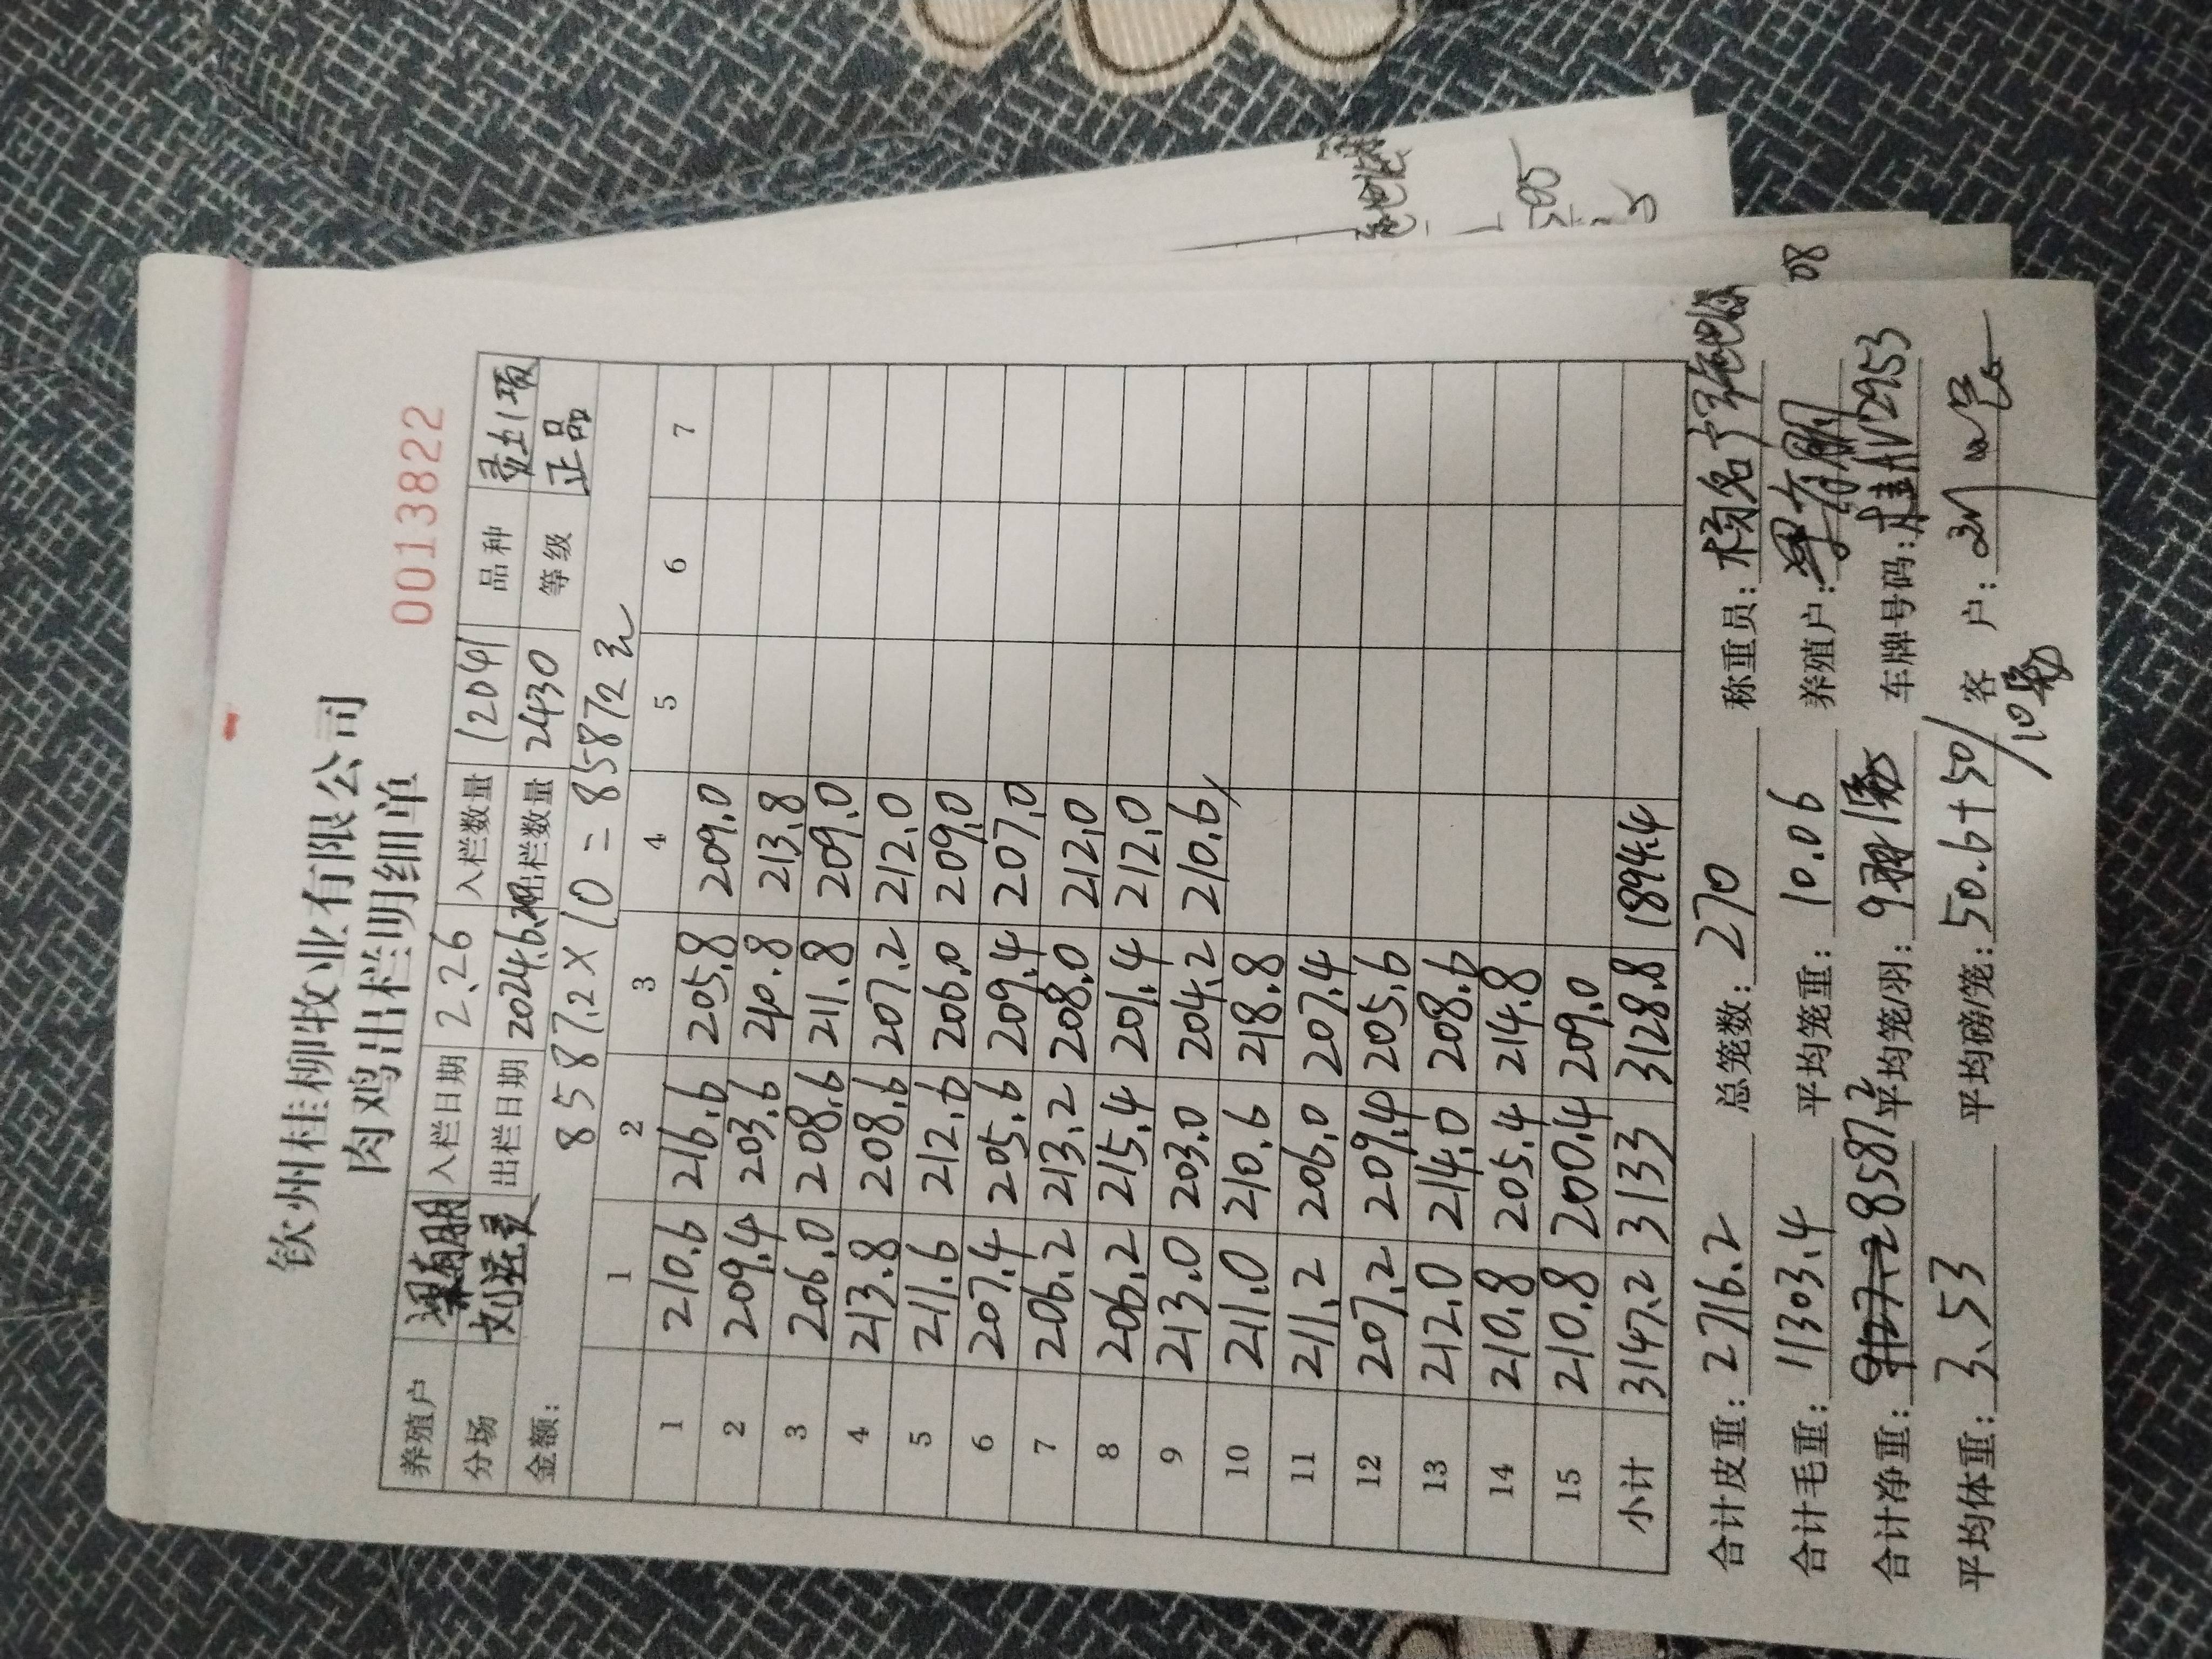 钦州桂柳牧业有限公司
肉鸡出栏明细单
0013822
养殖户 入栏日期 2.26 入栏数量 12041 品种 灵山项
分场 出栏日期 2024.6. 出栏数量 2430 等级 正品
金额： 8587.2×10=85872元
1 2 3 4 5 6 7
1 210.6 216.6 205.8 209.0
2 209.4 203.6 210.8 213.8
3 206.0 208.6 211.8 209.0
4 213.8 208.6 207.2 212.0
5 211.6 212.6 206.0 209.0
6 207.4 205.6 209.4 207.0
7 206.2 213.2 208.0 212.0
8 206.2 215.4 201.4 212.0
9 213.0 203.0 204.2 210.6
10 211.0 210.6 218.8
11 211.2 206.0 207.4
12 207.2 209.4 205.6
13 212.0 214.0 208.6
14 210.8 205.4 214.8
15 210.8 200.4 209.0
小计 3147.2 3133 3128.8 1894.4
合计皮重：2716.2 总笼数：270 称重员：杨名宁
合计毛重：11303.4 平均笼重：10.06 养殖户： 08
合计净重：8587.2 平均笼/羽：9 车牌号码：桂AV2953
平均体重：3.53 平均磅/笼：50.6+50/ 客户：
595